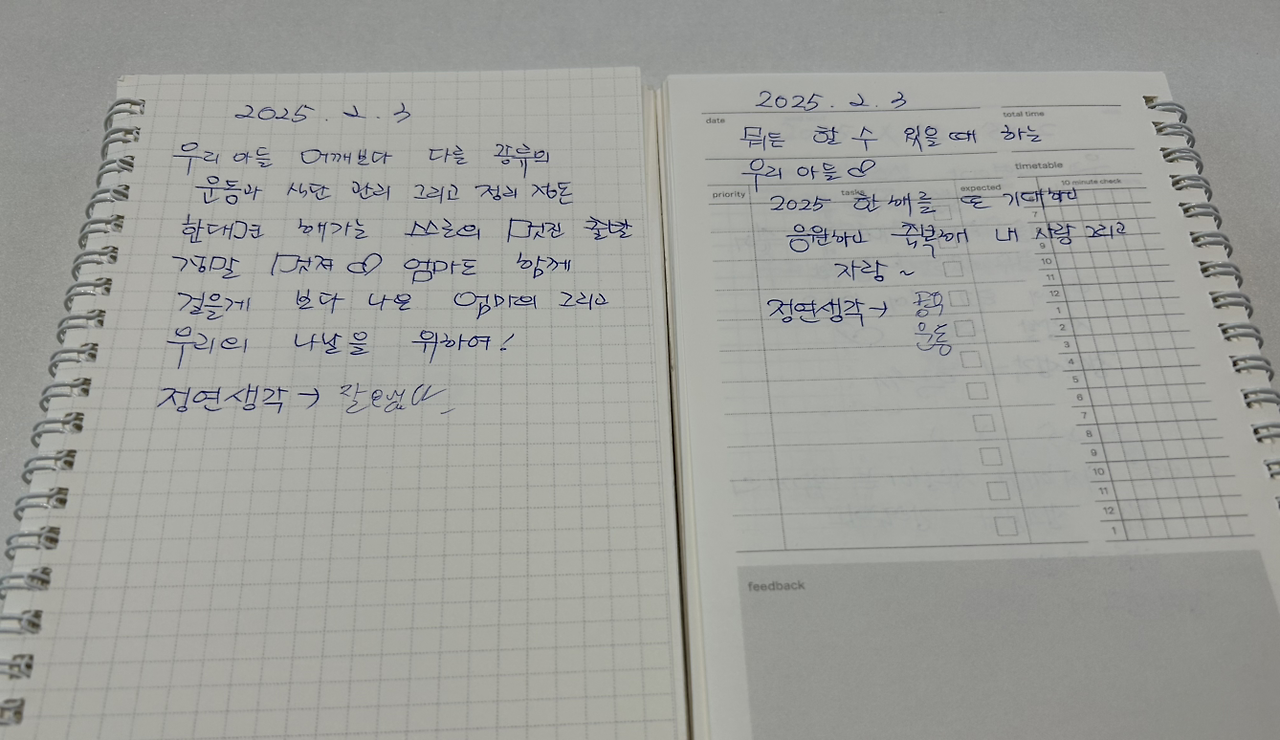 2025. 2. 3
우리 아들 어깨보다 다른
운동과 식단 관리 그리고 정리 정돈
한다고 해가는 스스로의 멋진 출발
정말 멋져 엄마도 함께
걸을게 보다 나은 엄마의 그리고
우리의 나날을 위하여!
정연생각→ 잘했다
2025. 2. 3
date
total time
뭐든 할 수 있을 때 하는
우리 아들
timetable
priority
tasks
expected
10 minute check
2025 한 해를 또 기대하고
응원하고 축복해 내 사랑 그리고
자랑 ~
정연생각→ 공부
운동
7
9
10
11
12
1
2
3
4
5
6
7
8
9
10
11
12
1
feedback